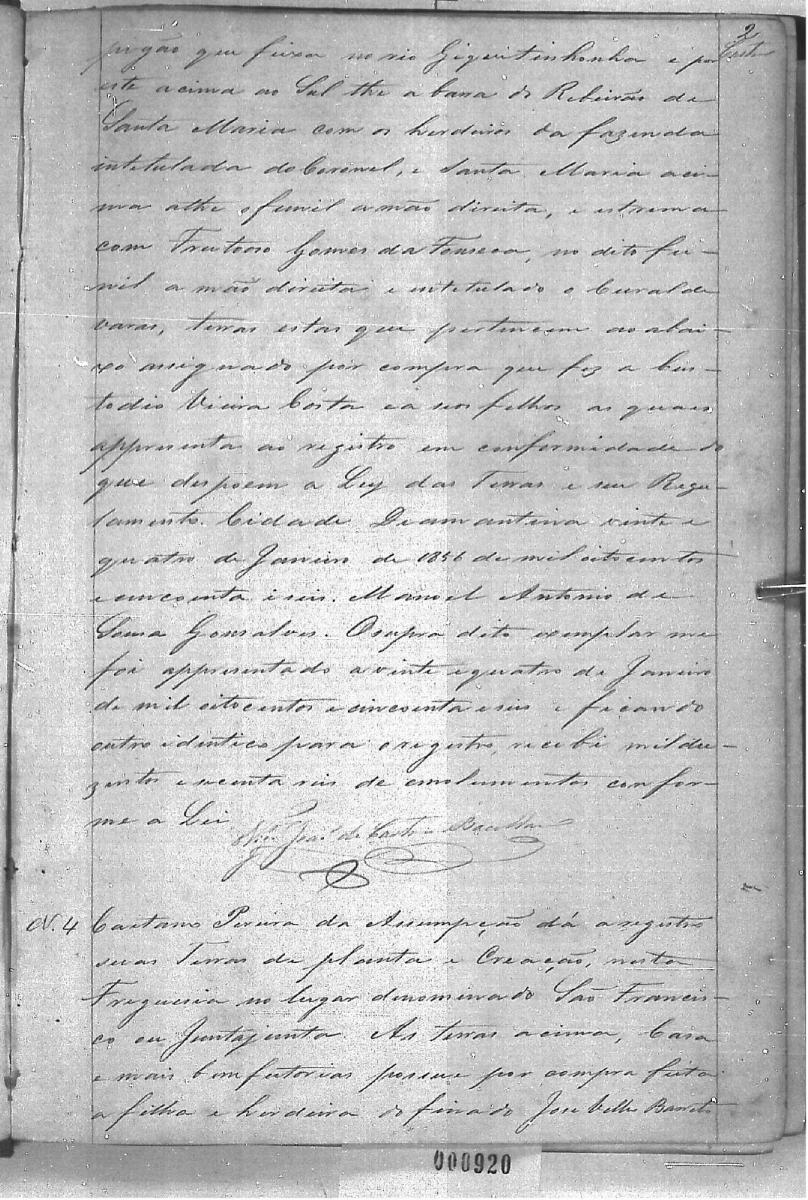 2
Castro
pigão que finxa no rio Giquitinhonha e por
este acima ao Sul the a barra do Ribeirão de
Santa Maria com os herdeiros da fazenda
intitulada do Coronel, e Santa Maria aci-
ma athe o funil a mão direita, e estrema
com Frutuoso Gomes da Fonseca, no dito fu-
nil a mão direita e intitulado o Curalde
varas, terras estas que pertencem ao abai-
xo assignado por compra que fez a Cus-
todio Vieira Costa e a seos filhos as quaes
appresenta ao registro em conformidade do
que despoem a Ley das Terras e seu Regu-
lamento. Cidade Deamantina vinte e
quatro de Janeiro de 1856 de mil oitocentos
e cincoenta e seis. Manoel Antonio de
Sousa Gonsalves. O supra dito exemplar me
foi appresentado a vinte e quatro de Janeiro
de mil oitocentos e cincoenta e seis e ficando
outro identico para o registro, recebi mil du-
zentos e secenta reis de emolumentos confor-
me a Lei
José de Castro
N. 4 Caetano Pereira da Assumpção dá a registro
suas Terras de planta e Creação, nesta
Freguesia no lugar dinominado São Francis-
co ou Juntajunta. As terras acima, Casa
e mais bemfeitorias possue por compra feita
a filha e herdeira do finado José Velho Barreto
000920